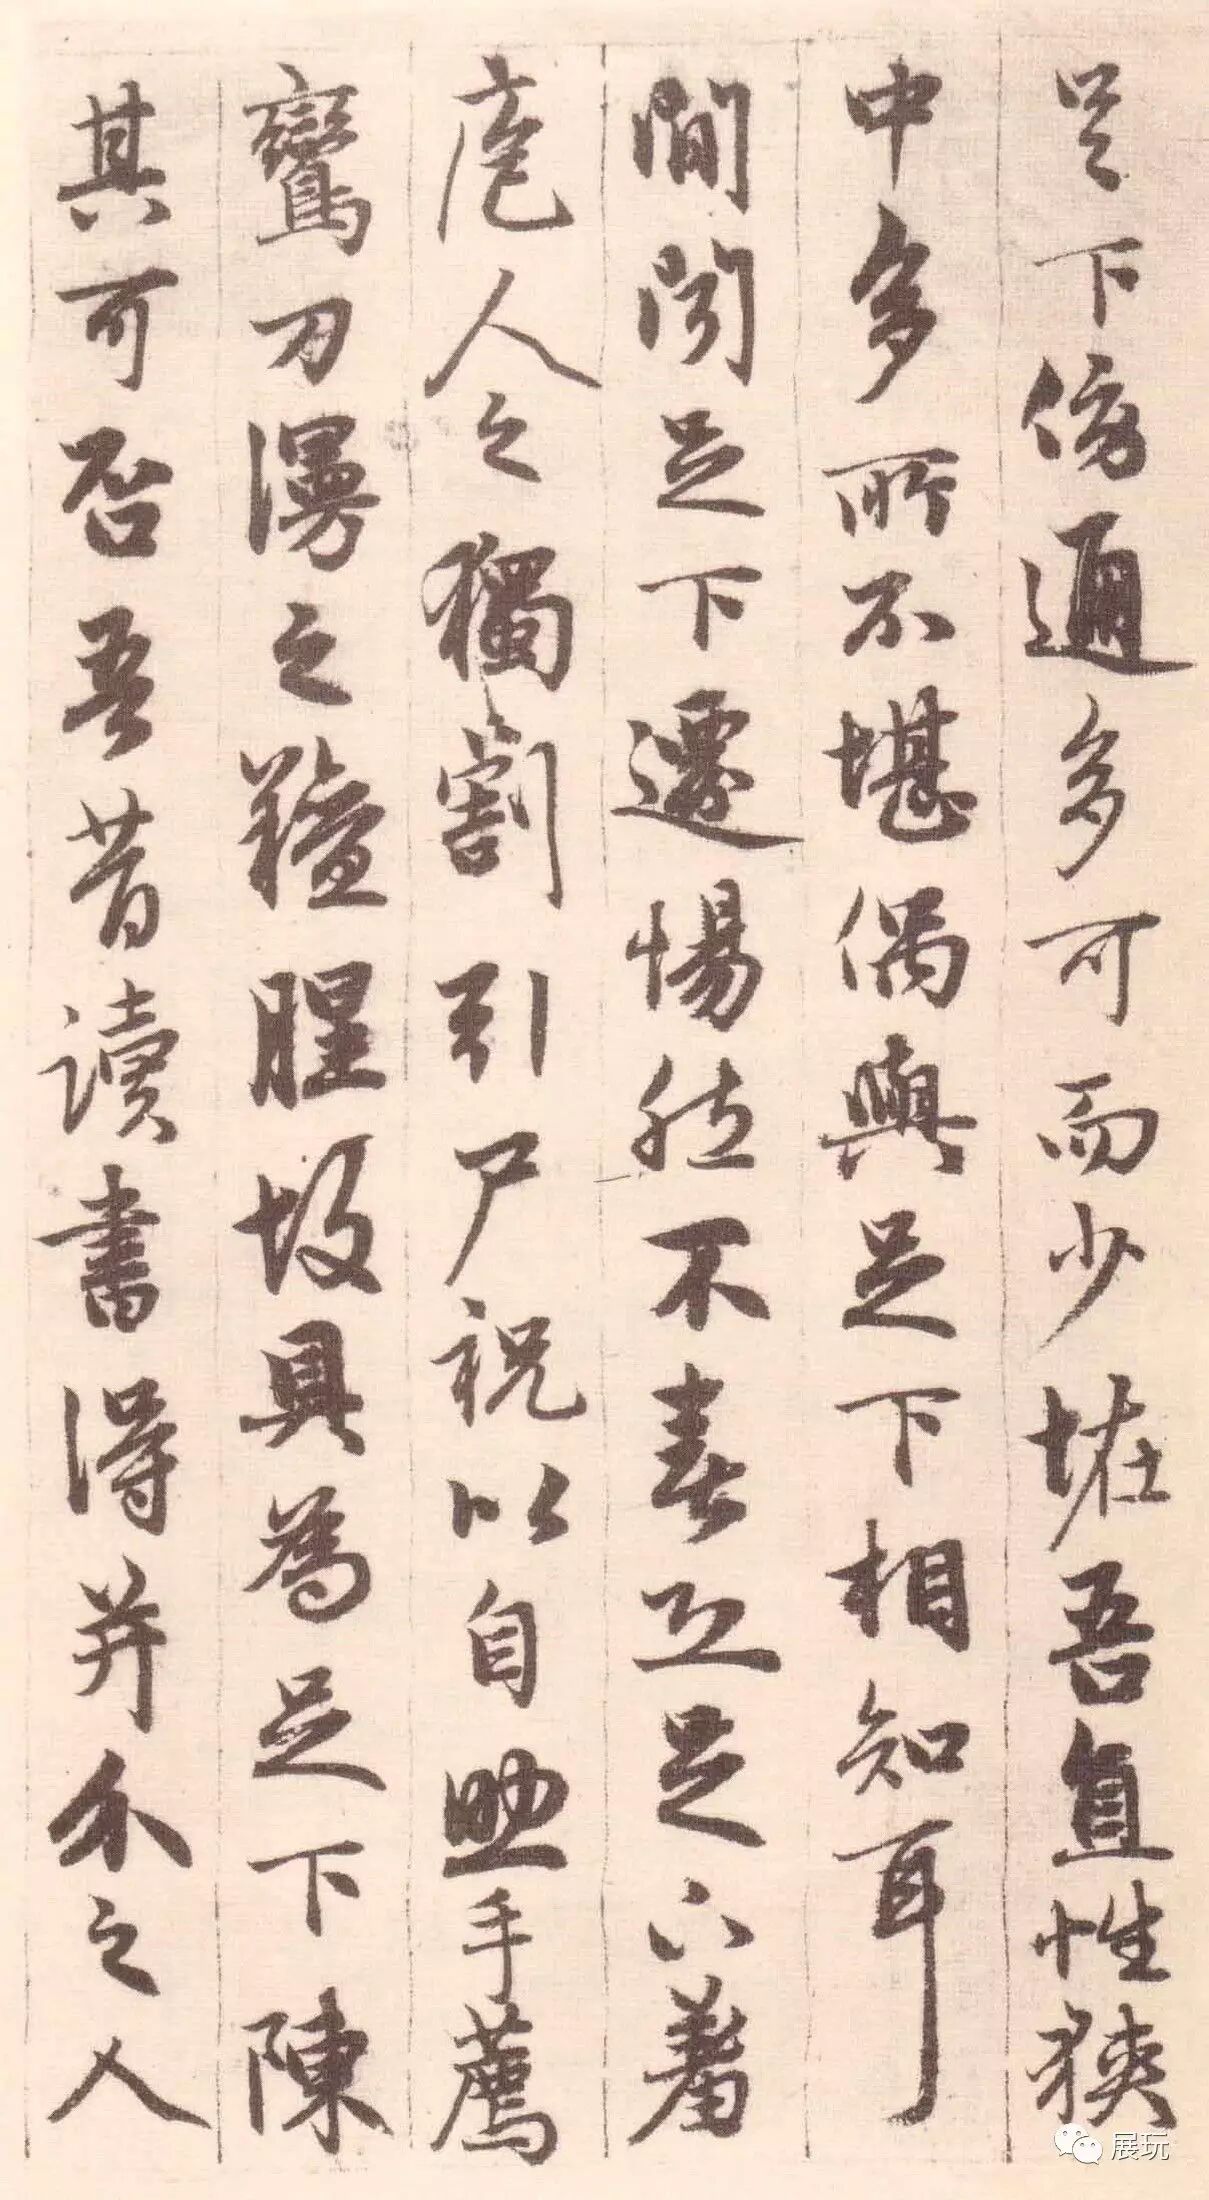 足下傍通多可而少恠吾直性狹
中多所不堪偶與足下相知耳
間聞足下遷惕然不喜恐足下羞
庖人之獨割引尸祝以自助手薦
鸞刀漫之羶腥故具為足下陳
其可否吾昔讀書得并介之人
展玩